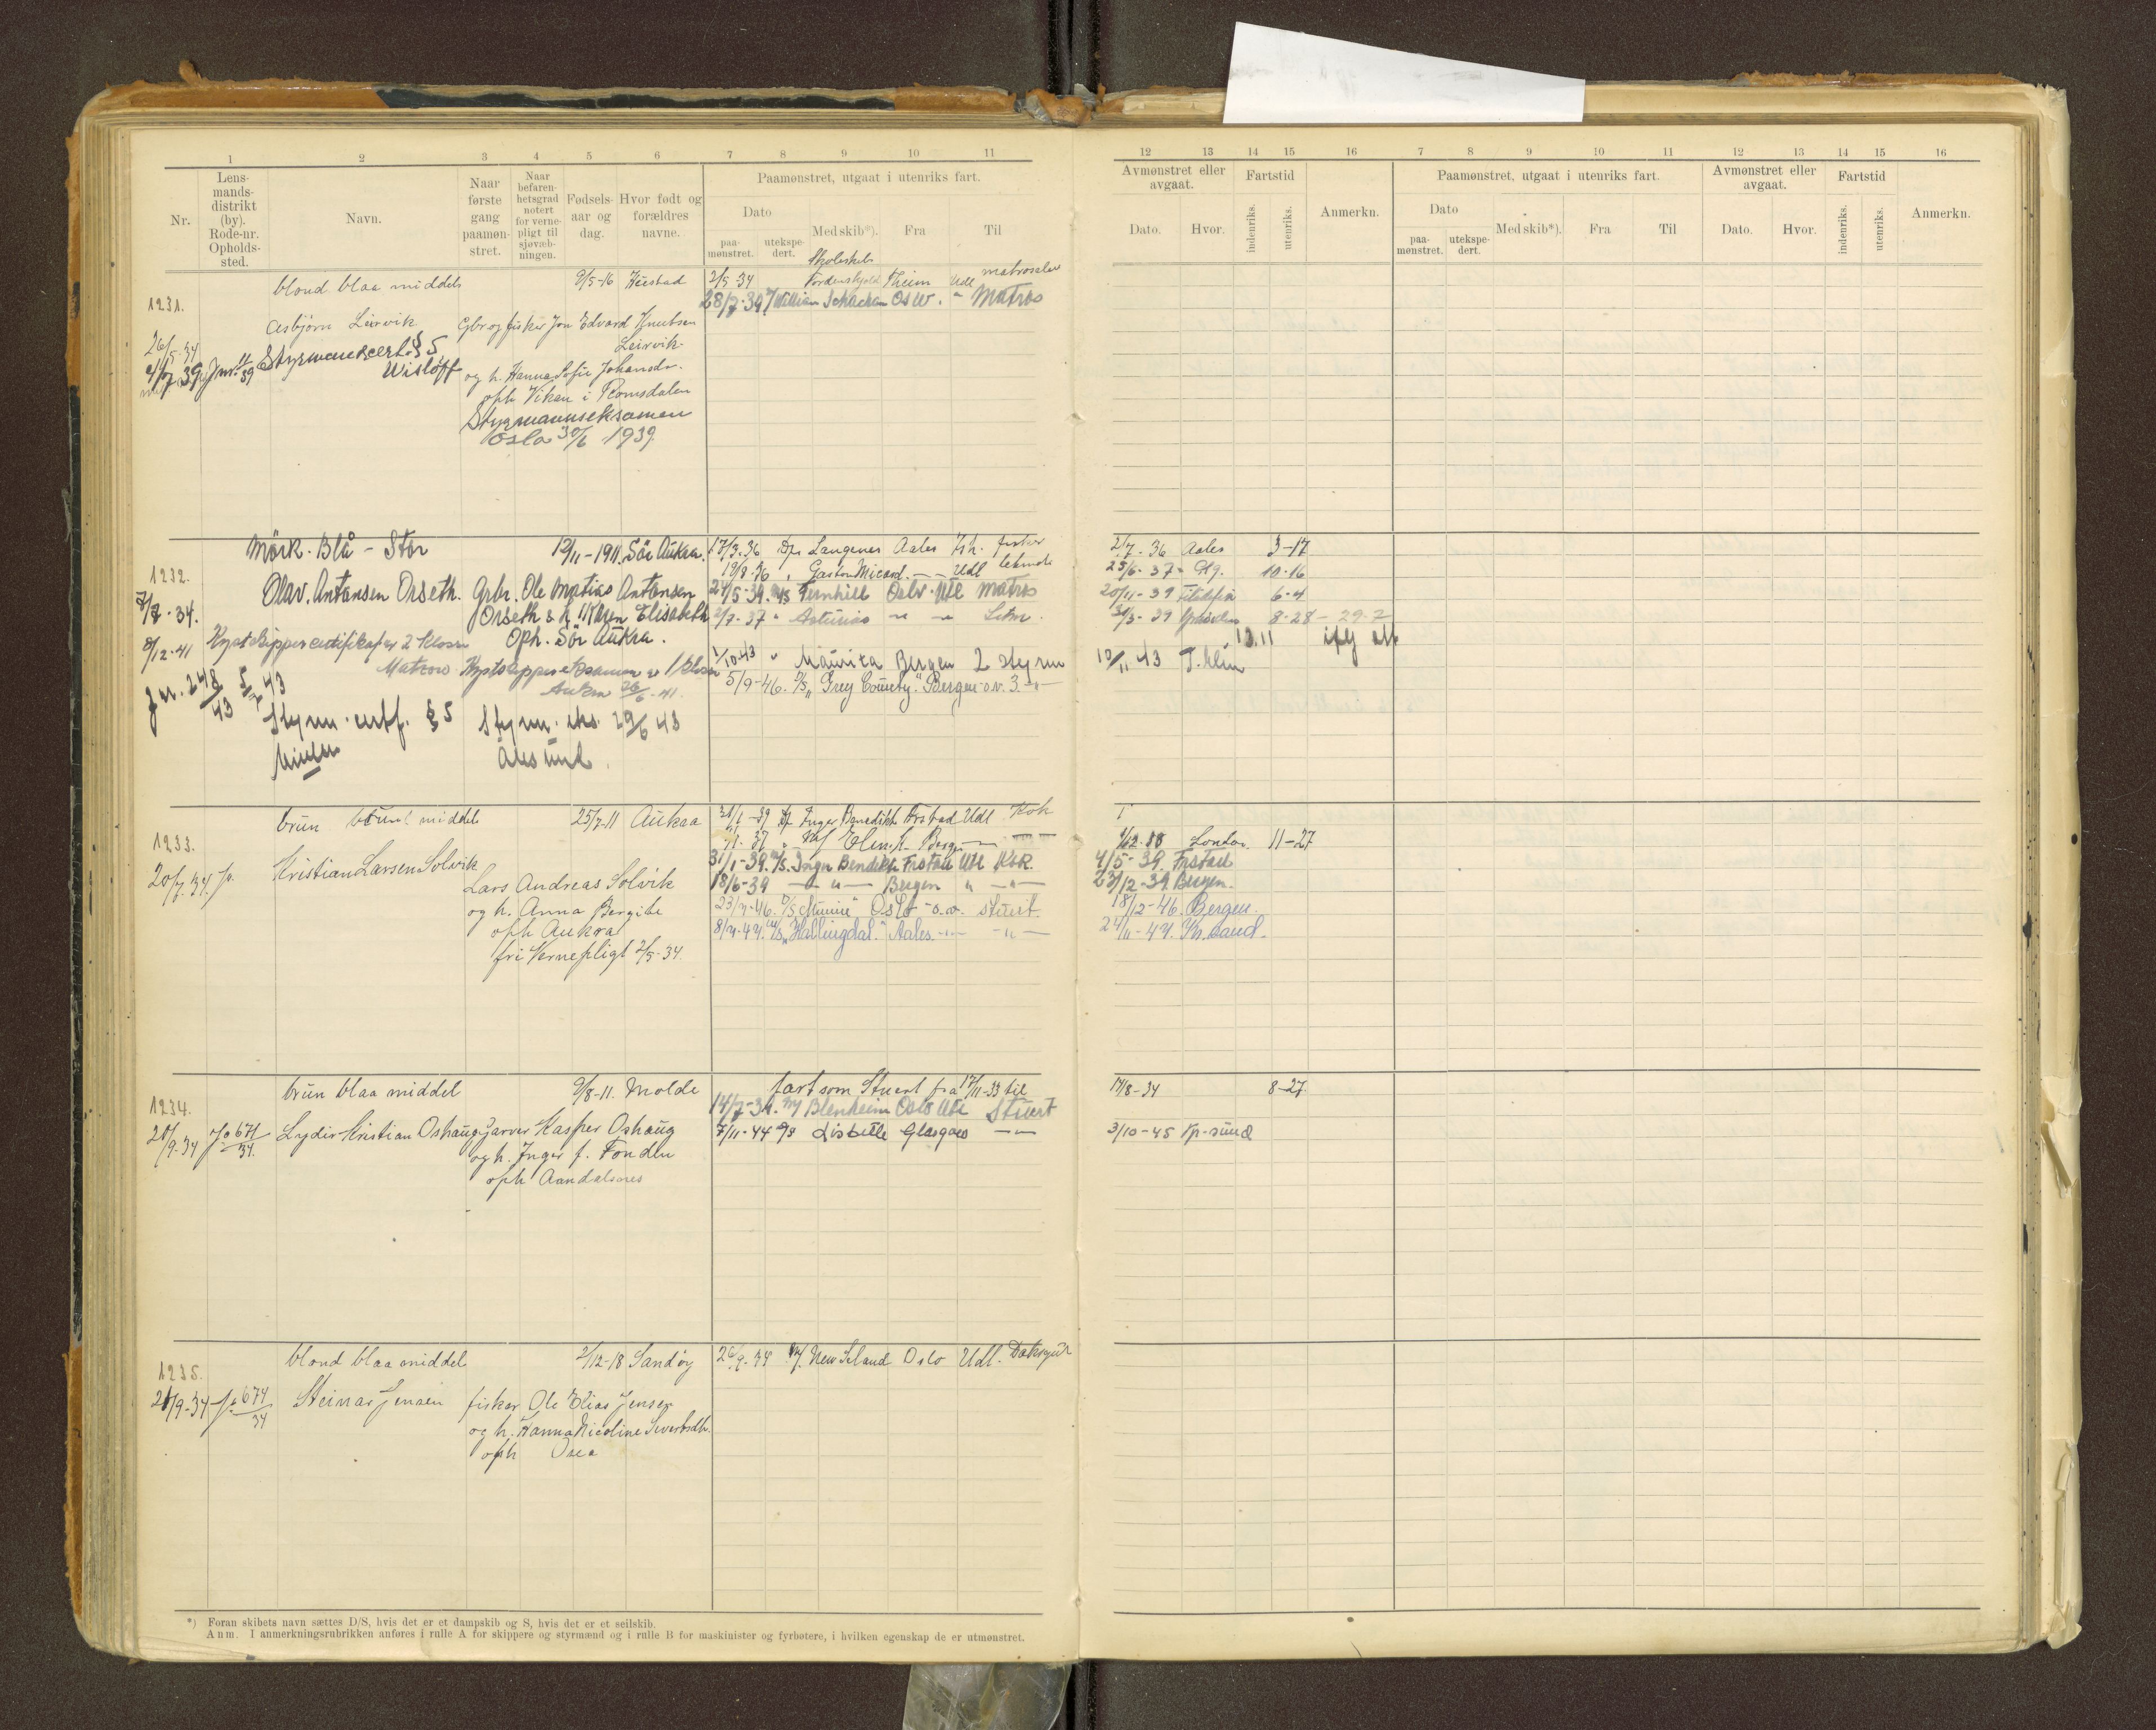 1 2 3 4 5 6 7 8 9 10 11
Nr.
Lens-
mands-
distrikt
(by).
Rode-nr.
Opholds-
sted.
Navn.
Naar
første
gang
paamøn-
stret.
Naar
befaren-
hetsgrad
notert
for verne-
pligt til
sjøvæb-
ningen.
Fødsels-
aar og
dag.
Hvor født og
forældres
navne.
Paamønstret, utgaat i utenriks fart.
Dato
paa-
mønstret.
utekspe-
dert.
Med skib*).
Fra
Til
12 13 14 15 16 7 8 9 10 11 12 13 14 15 16
Avmønstret eller
avgaat.
Dato.
Hvor.
Fartstid
indenriks.
utenriks.
Anmerkn.
Paamønstret, utgaat i utenriks fart.
Dato
paa-
mønstret.
utekspe-
dert.
Med skib*).
Fra
Til
Avmønstret eller
avgaat.
Dato.
Hvor.
Fartstid
indenriks.
utenriks.
Anmerkn.
Skoleskib
blond blaa middels 9/5-16 2/5-34 Theim Udl matroselev
1231. 28/7-39 William Oslo. " Matros
Asbjørn Leirvik Gbr og fisker Jon Edvard Knutsen
26/5-34 Leirvik
Styrmanscert. § 5
Wisløff og h. Hanna Sofie Johansdr.
oph Viken i Romsdalen
Styrmannseksamen
Oslo 30/6 1939
Mörk. Blå - Stor 12/11-1911. Sör Aukra. 17/3.36 Langenes Aales fisker 2/7-36 Aales 3-17
1232. 19/8-36 " Gaston Micard. - - Udl 25/6-37 10-16
Olav. Antonsen Orseth. Grbr. Ole Matias Antonsen 24/5-39. Fernhill Oslo. Utl Matros 20/11-39 6-4
7/7-34. Orseth & h. Karen Elisabeth 2/7-37 " Asturias 8-28 - 29-7
8/12-41 Kystskippercertifikat av 2 klasse Oph. Sör Aukra. 12.11
Kystskippereksamen av 1 klasse 1/10-43 " Bergen 2 styrm 12/11 43
26/6-41 5/9-46. D/S "Grey County". Bergen o.v. 3.
J.nr. 248/43 5/7 43
Styrm. certf. § 5 Styrm. eks. 29/6 43
Ålesund.
brun middels 25/7-11 Aukra 31/1-39 Inger Benedikte Frstad Udl Kok
1233. Bergen London 11-27
Kristian Larsen Solvik 31/1-39. M/S. Inger Bendikte Frstad Utl Kok 4/5-39. Frstad
20/7.34. Lars Andreas Solvik 18/6-39 - " - Bergen " - " - 23/12-39 Bergen.
og h. Anna Bergite Oslo - o.v. stuert. 18/12-46. Bergen.
oph Aukra M/S "Hallingdal." Aales. Kr. sand.
fri Vernepligt 2/5-34.
brun blaa middel 9/8-11. Molde fart som Stuert fra 17/11-33 til 17/8-34 8-27
1234. 14/7-39. Blenheim Oslo Utl Stuert
20/9-34 Jo 671/34. Lydir Kristian Oshaug Garver Kasper Oshaug 7/11-44 Lisbeth Glasgow 3/10-45
og h. Inger f. Fondlu
oph Aandalsnes
blond blaa middel 2/12-18 Sandøy 26/9-34 M/ New Seland Oslo Udl. Doksgut
1235.
21/9-34 Jo 674/34 Steinar Jensen fisker Ole Elias Jensen
og h. Hanna Nicoline Sivertsdtr.
oph Osea
*) Foran skibets navn sættes D/S, hvis det er et dampskib og S, hvis det er et seilskib.
Anm. I anmerkningsrubrikken anføres i rulle A for skippere og styrmænd og i rulle B for maskinister og fyrbøtere, i hvilken egenskap de er utmønstret.